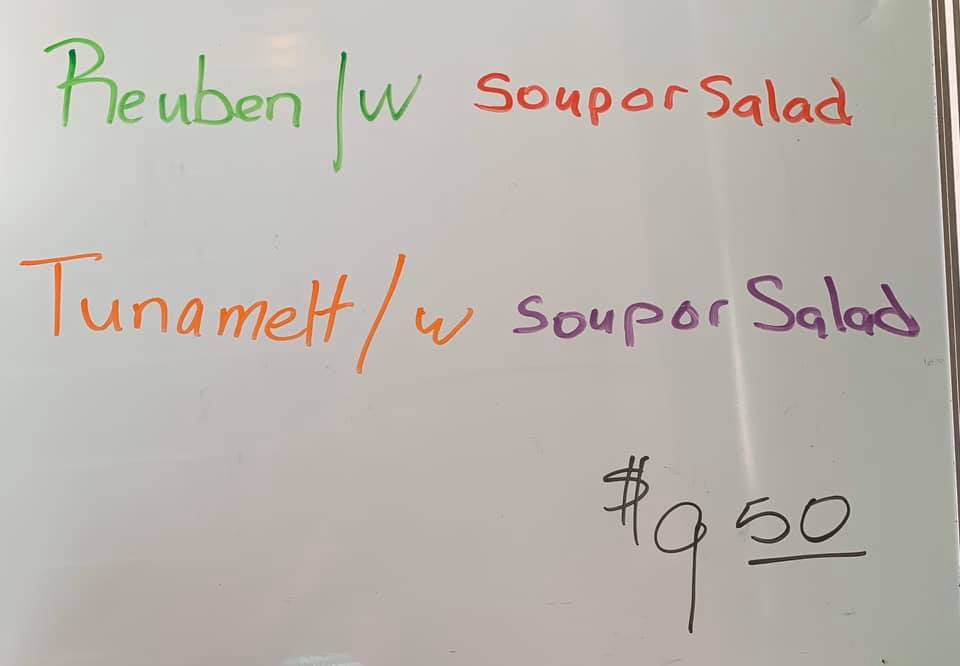 Reuben /w Soup or Salad
Tunamelt /w Soup or Salad
$9 50